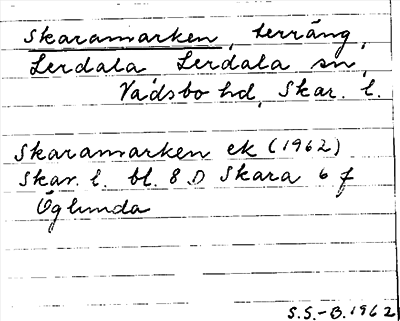 Skaramarken, terräng,
Lerdala Lerdala sn,
Vadsbo hd, Skar. l.
Skaramarken ek (1962)
Skar. l. bl. 8 D Skara 6 f
Öglunda
S.S.-B. 1962